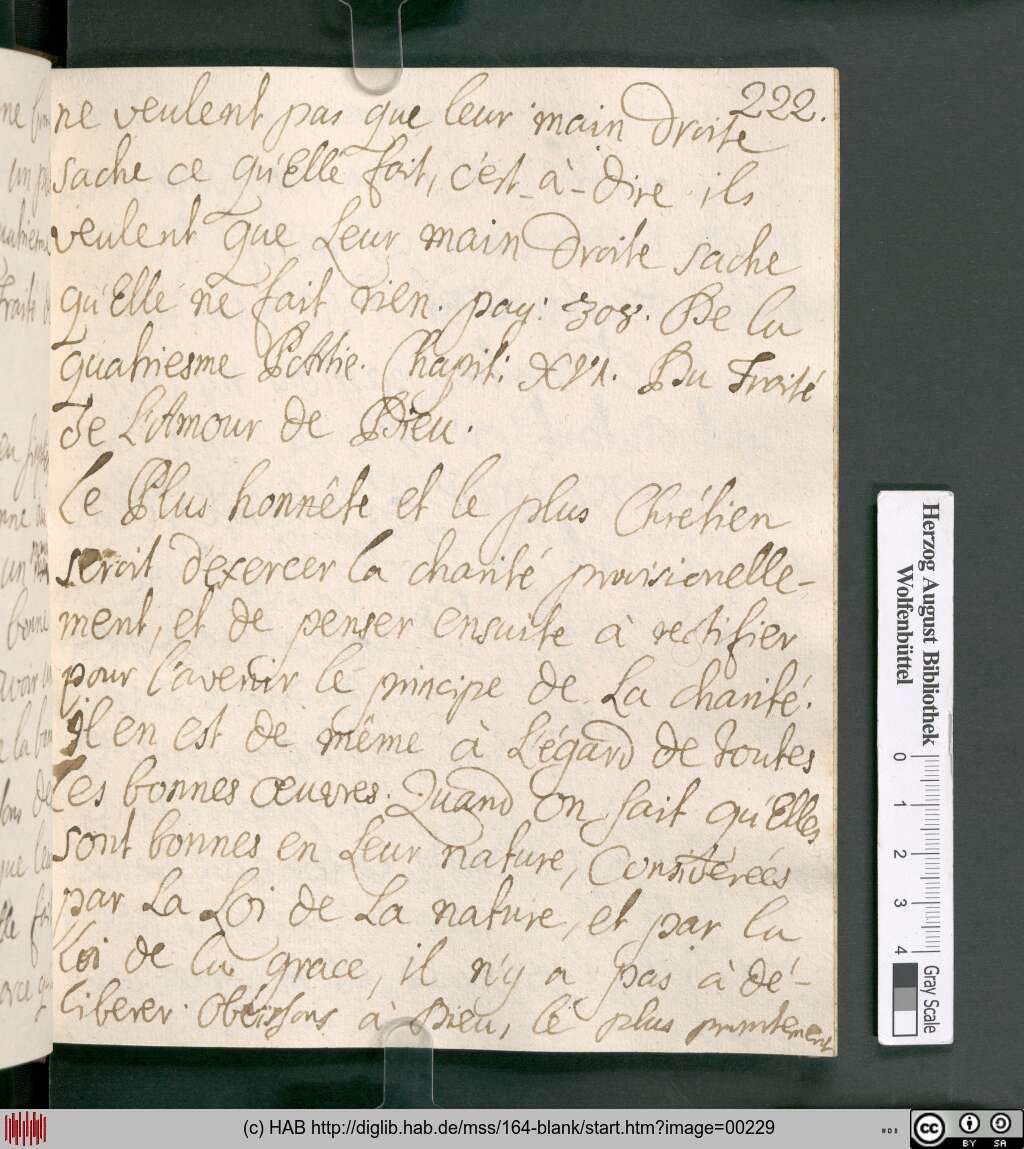 222.
ne veulent pas que leur main droite
sache ce qu'Elle fait, c'est-à-dire ils
veulent que Leur main droite sache
qu'Elle ne fait rien. pag: 308. De la
quatriesme Partie. Chapit: XVI. Du Traité
de L'Amour de Dieu.
Le Plus honnête et le plus Chrétien
seroit d'exercer la charité provisionelle-
ment, et de penser ensuite à rectifier
pour l'avenir le principe de La charité.
Il en est de même à L'égard de toutes
Les bonnes œuvres. Quand on sait qu'Elles
sont bonnes en Leur nature, Considerées
par La Loi de La nature, et par la
Loi de la grace, il n'y a pas à dé-
liberer. Obéissons à Dieu, le plus promtement
Herzog August Bibliothek
Wolfenbüttel
0 1 2 3 4
Gray Scale
(c) HAB http://diglib.hab.de/mss/164-blank/start.htm?image=00229
cc BY SA